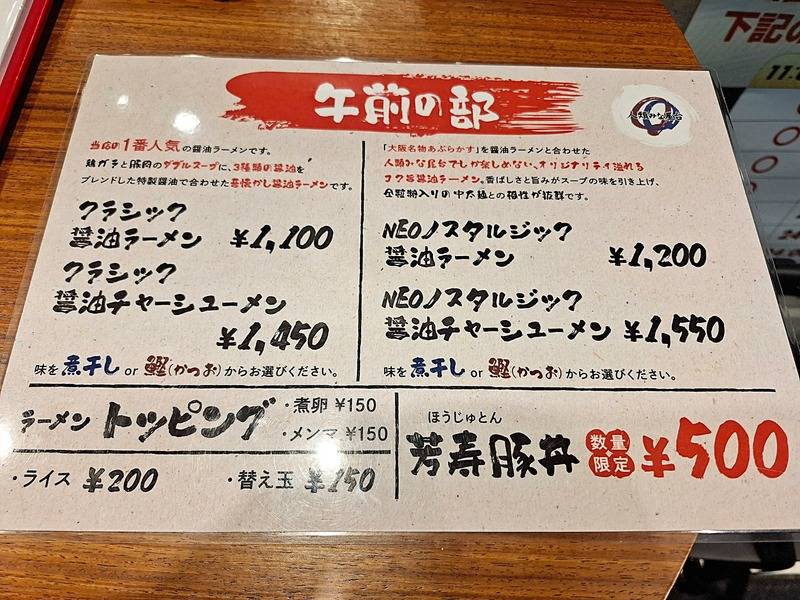 下記の
11:
午前の部
人類みな麺台
当店の1番人気の醤油ラーメンです。
鶏ガラと豚肉のダブルスープに、3種類の醤油を
ブレンドした特製醤油で合わせた昔懐かし醤油ラーメンです。
クラシック
醤油ラーメン ¥1,100
クラシック
醤油チャーシューメン
¥1,450
味を煮干し or 鰹(かつお)からお選びください。
「大阪名物あぶらかす」を醤油ラーメンと合わせた
人類みな麺台でしか楽しめない、オリジナリティ溢れる
コク旨醤油ラーメン。香ばしさと旨みがスープの味を引き上げ、
全粒粉入りの中太麺との相性が抜群です。
NEOノスタルジック
醤油ラーメン ¥1,200
NEOノスタルジック
醤油チャーシューメン ¥1,550
味を煮干し or 鰹(かつお)からお選びください。
ラーメントッピング
・煮卵 ¥150
・メンマ ¥150
・ライス ¥200 ・替え玉 ¥150
ほうじゅとん
芳寿豚丼 数量限定 ¥500